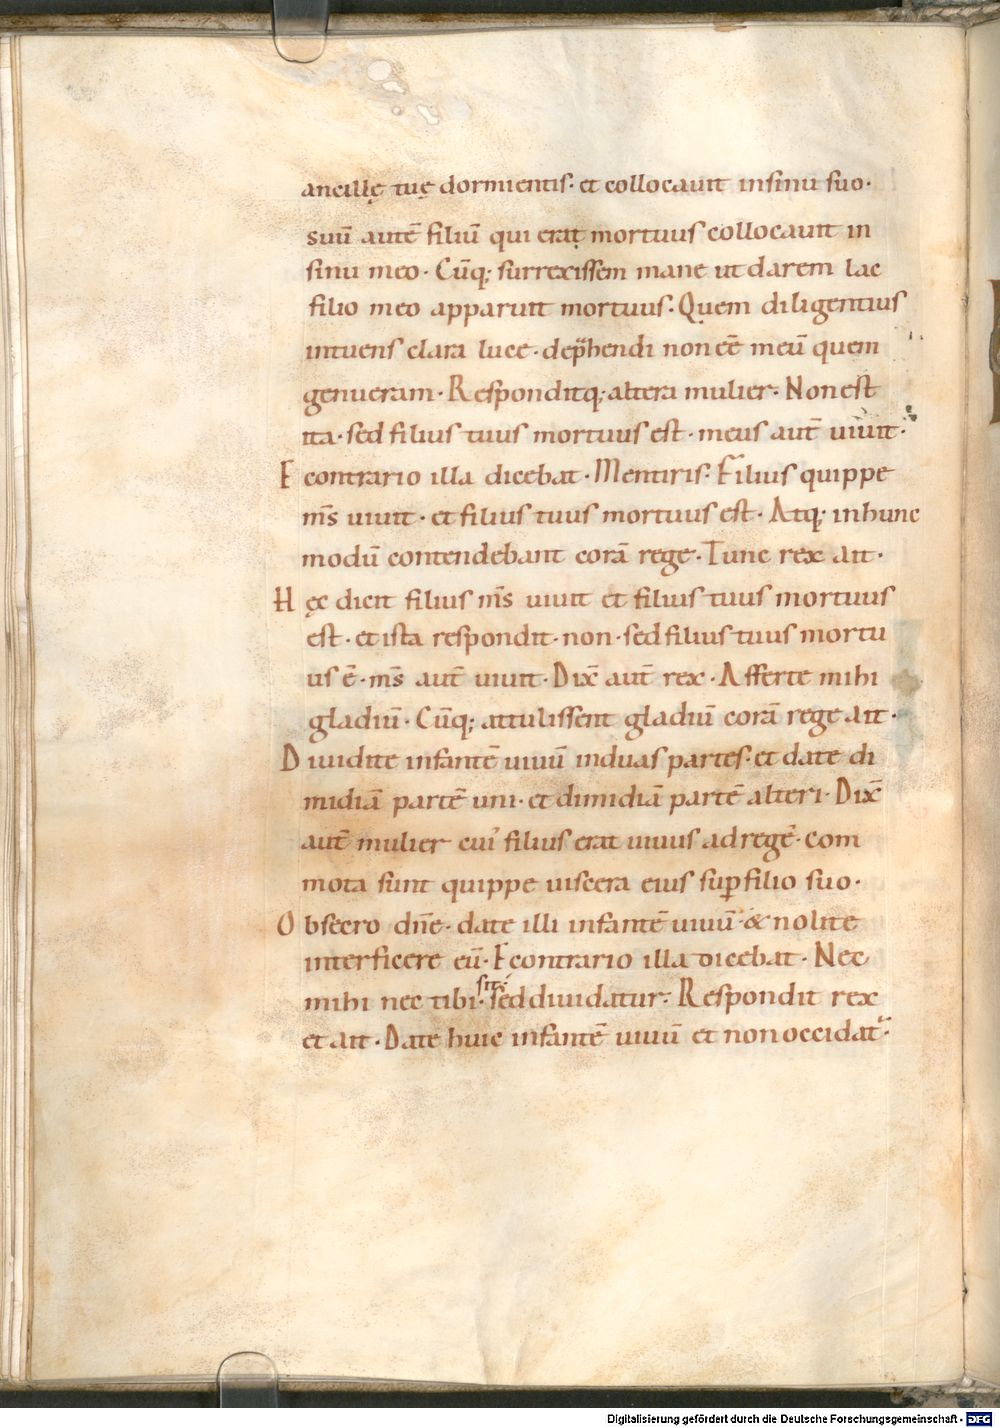 ancillę tuę dormientis· et collocauit insinu suo·
suū autē filiū qui erat mortuus collocauit in
sinu meo· Cūq; surrexissem mane ut darem lac
filio meo apparuit mortuus· Quem diligentius
intuens clara luce· dep̄hendi non eē meū quem
genueram· Responditq; altera mulier· Non est
ita· sed filius tuus mortuus est· meus aut̄ uiuit·
E contrario illa dicebat· Mentiris· Filius quippe
m̄s uiuit· et filius tuus mortuus est· Atq; inhunc
modū contendebant corā rege· Tunc rex ait·
Hęc dicit filius m̄s uiuit et filius tuus mortuus
est· et ista respondit· non· sed filius tuus mortu
us ē· m̄s aut̄ uiuit· Dix̄ aut̄ rex· Afferte mihi
gladiū· Cūq; attulissent gladiū corā rege ait·
Diuidite infantē uiuū induas partes· et date di
midiā partē uni· et dimidiā partē alteri· Dix̄
aut̄ mulier cui' filius erat uiuus ad regē· com
mota sunt quippe uiscera eius sup̱ filio suo·
Obsecro dn̄e· date illi infantē uiuū· & nolite
interficere eū· Econtrario illa dicebat· Nec
mihi nec tibi· sit sed diuidatur· Respondit rex
et ait· Date huic infantē uiuū et non occidat᷑·
Digitalisierung gefördert durch die Deutsche Forschungsgemeinschaft - DFG